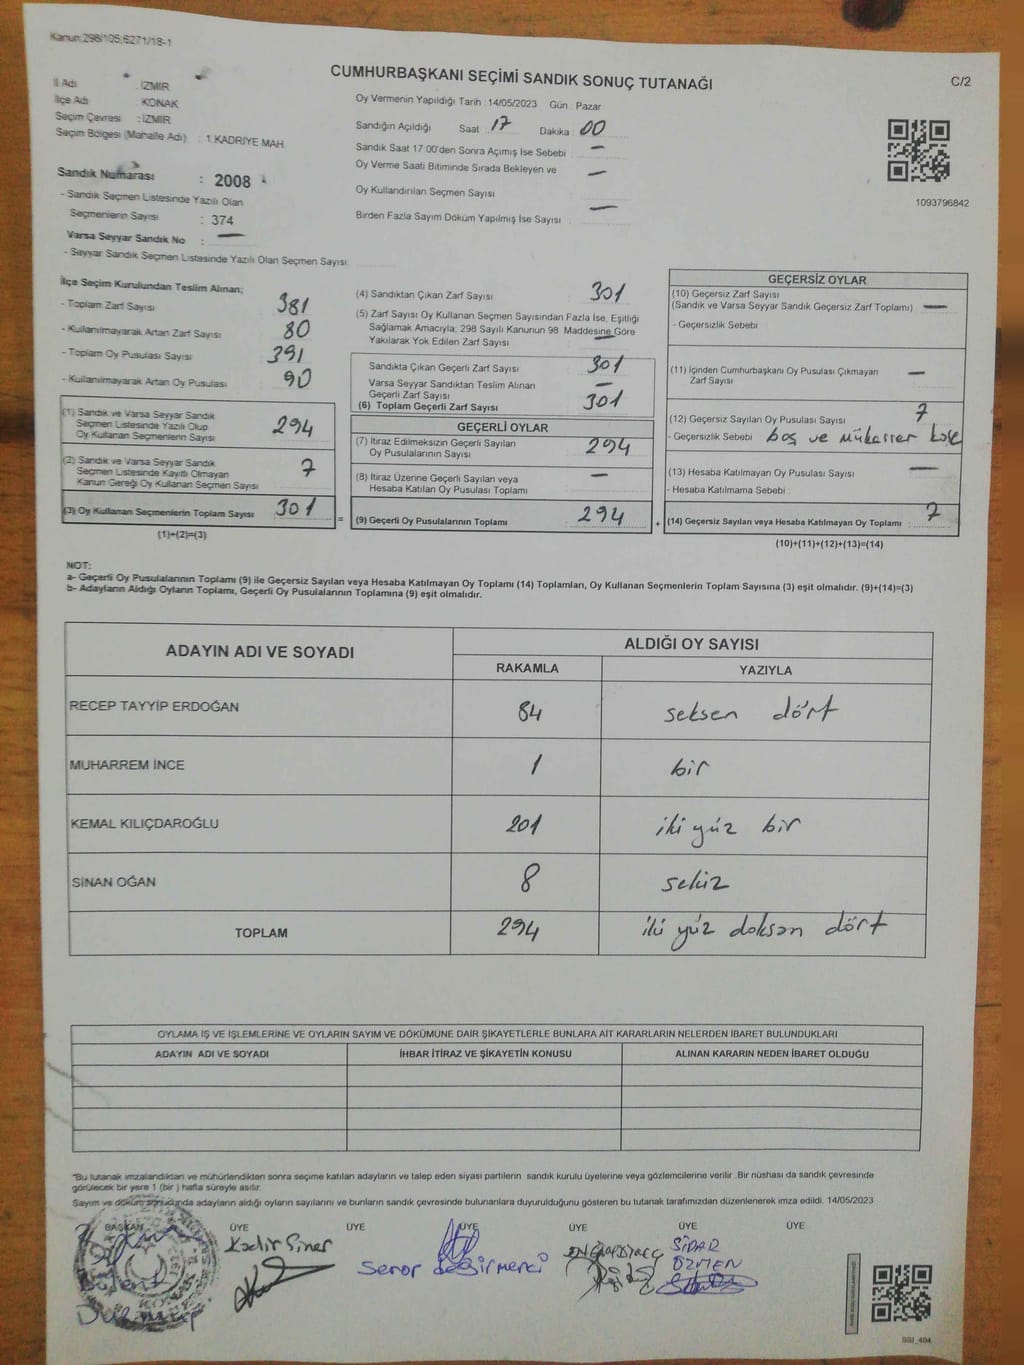 Kanun:298/105;6271/18-1
C/2
CUMHURBAŞKANI SEÇİMİ SANDIK SONUÇ TUTANAĞI
İl Adı : İZMİR
İlçe Adı : KONAK
Seçim Çevresi : İZMİR
Seçim Bölgesi (Mahalle Adı) : 1.KADRİYE MAH.
Sandık Numarası : 2008
- Sandık Seçmen Listesinde Yazılı Olan
Seçmenlerin Sayısı : 374
Varsa Seyyar Sandık No : —
- Seyyar Sandık Seçmen Listesinde Yazılı Olan Seçmen Sayısı:
Oy Vermenin Yapıldığı Tarih : 14/05/2023 Gün : Pazar
Sandığın Açıldığı Saat : 17 Dakika : 00
Sandık Saat 17.00'den Sonra Açımış İse Sebebi : —
Oy Verme Saati Bitiminde Sırada Bekleyen ve —
Oy Kullandırılan Seçmen Sayısı
Birden Fazla Sayım Döküm Yapılmış İse Sayısı : —
1093796842
İlçe Seçim Kurulundan Teslim Alınan;
- Toplam Zarf Sayısı 381
- Kullanılmayarak Artan Zarf Sayısı 80
- Toplam Oy Pusulası Sayısı 391
- Kullanılmayarak Artan Oy Pusulası 90
(1) Sandık ve Varsa Seyyar Sandık
Seçmen Listesinde Yazılı Olup
Oy Kullanan Seçmenlerin Sayısı 294
(2) Sandık ve Varsa Seyyar Sandık
Seçmen Listesinde Kayıtlı Olmayan
Kanun Gereği Oy Kullanan Seçmen Sayısı 7
(3) Oy Kullanan Seçmenlerin Toplam Sayısı 301
(1)+(2)=(3)
(4) Sandıktan Çıkan Zarf Sayısı 301
(5) Zarf Sayısı Oy Kullanan Seçmen Sayısından Fazla İse, Eşitliği
Sağlamak Amacıyla; 298 Sayılı Kanunun 98. Maddesine Göre
Yakılarak Yok Edilen Zarf Sayısı —
Sandıkta Çıkan Geçerli Zarf Sayısı 301
Varsa Seyyar Sandıktan Teslim Alınan
Geçerli Zarf Sayısı —
(6) Toplam Geçerli Zarf Sayısı 301
GEÇERLİ OYLAR
(7) İtiraz Edilmeksizin Geçerli Sayılan
Oy Pusulalarının Sayısı 294
(8) İtiraz Üzerine Geçerli Sayılan veya
Hesaba Katılan Oy Pusulası Toplamı —
= (9) Geçerli Oy Pusulalarının Toplamı 294 +
GEÇERSİZ OYLAR
(10) Geçersiz Zarf Sayısı
(Sandık ve Varsa Seyyar Sandık Geçersiz Zarf Toplamı) —
- Geçersizlik Sebebi :
(11) İçinden Cumhurbaşkanı Oy Pusulası Çıkmayan
Zarf Sayısı —
(12) Geçersiz Sayılan Oy Pusulası Sayısı 7
- Geçersizlik Sebebi : boş ve mükerrer kaşe
(13) Hesaba Katılmayan Oy Pusulası Sayısı —
- Hesaba Katılmama Sebebi :
(14) Geçersiz Sayılan veya Hesaba Katılmayan Oy Toplamı 7
(10)+(11)+(12)+(13)=(14)
NOT:
a- Geçerli Oy Pusulalarının Toplamı (9) ile Geçersiz Sayılan veya Hesaba Katılmayan Oy Toplamı (14) Toplamları, Oy Kullanan Seçmenlerin Toplam Sayısına (3) eşit olmalıdır. (9)+(14)=(3)
b- Adayların Aldığı Oyların Toplamı, Geçerli Oy Pusulalarının Toplamına (9) eşit olmalıdır.
ADAYIN ADI VE SOYADI ALDIĞI OY SAYISI
RAKAMLA YAZIYLA
RECEP TAYYİP ERDOĞAN 84 seksen dört
MUHARREM İNCE 1 bir
KEMAL KILIÇDAROĞLU 201 iki yüz bir
SİNAN OĞAN 8 sekiz
TOPLAM 294 iki yüz doksan dört
OYLAMA İŞ VE İŞLEMLERİNE VE OYLARIN SAYIM VE DÖKÜMÜNE DAİR ŞİKAYETLERLE BUNLARA AİT KARARLARIN NELERDEN İBARET BULUNDUKLARI
ADAYIN ADI VE SOYADI İHBAR İTİRAZ VE ŞİKAYETİN KONUSU ALINAN KARARIN NEDEN İBARET OLDUĞU
*Bu tutanak imzalandıktan ve mühürlendikten sonra seçime katılan adayların ve talep eden siyasi partilerin sandık kurulu üyelerine veya gözlemcilerine verilir. Bir nüshası da sandık çevresinde
görülecek bir yere 1 (bir) hafta süreyle asılır.
Sayım ve döküm sonucunda adayların aldığı oyların sayılarını ve bunların sandık çevresinde bulunanlara duyurulduğunu gösteren bu tutanak tarafımızdan düzenlenerek imza edildi. 14/05/2023
BAŞKAN ÜYE ÜYE ÜYE ÜYE ÜYE ÜYE
Kadir Siner
Değirmenci
SİDAR
ÖZMEN
Bülent
SSI_404